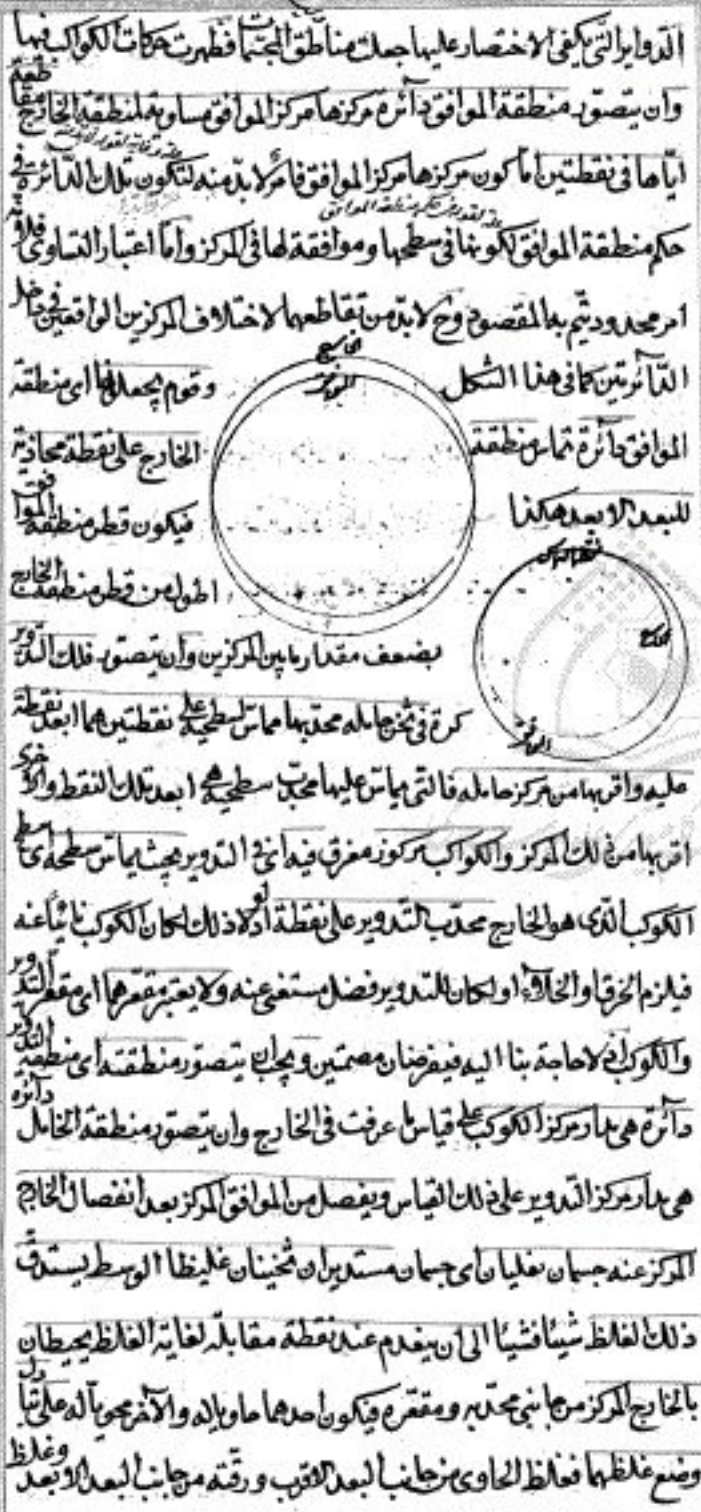 الدواير التى يكفى الاختصار عليها جعلت مناطق المجسمات فظهرت حركات الكواكب فيها
وان يتصور منطقة الموافق دآئرة مركزها مركز الموافق مساوية لمنطقة الخارج مقاطعة
اياها فى نقطتين اما كون مركزها مركز الموافق فامر لا بد منه لتكون تلك الدآئرة فى
حكم منطقة الموافق لكونها فى سطحها وموافقة لها فى المركز واما اعتبار التساوى فلانه
امر محدود يتم به المقصود وح لا بد من تقاطعهما لاختلاف المركزين الواقعين فى داخل
الدآئرتين كما فى هذا الشكل وقوم يجعلونها اى منطقة
الخارج
الموافق
الموافق دآئرة تماس منطقة الخارج على نقطة محاذية
للبعد الابعد هكذا فيكون قطر منطقة الموافق
اطول من قطر منطقة الخارج
الخارج
الموافق
بضعف مقدار ما بين المركزين وان يتصور فلك التدوير
كرة فى ثخن حامله محدبها مماس لسطحيه على نقطتين هما ابعد نقطة
عليه واقربها من مركز حامله فالتى يماس عليها محدب سطحيه هى ابعد تلك النقط والاخرى
اقربها من ذلك المركز والكواكب مركوز مغرق فيه اى فى التدوير بحيث يماس سطحه اى سطح
الكوكب الذى هو الخارج محدب التدوير على نقطة اذ لولا ذلك لكان الكوكب ناتيا عنه
فيلزم الخرق او الخلاء او لكان للتدوير فضل مستغنى عنه ولا يعتبر مقعرهما اى مقعر التدوير
والكوكب اذ لا حاجة بنا اليه فيفرضان مصمتين ويجب ان يتصور منطقته اى منطقة التدوير
دآئرة هى مدار مركز الكوكب على قياس ما عرفت فى الخارج وان يتصور منطقة الحامل دآئرة
هى مدار مركز التدوير على ذلك القياس ويفصل من الموافق المركز بعد انفصال الخارج
المركز عنه جسمان تعليميان اى جسمان مستديران ثخينان غليظا الوسط يستدق
ذلك الغلظ شيئا فشيئا الى ان ينعدم عند نقطة مقابلة لغاية الغلظ يحيطان
بالخارج المركز من جانبى محدبه ومقعره فيكون احدهما حاويا له والآخر محويا له على تبادل
وضع غلظهما فغلظ الحاوى من جانب البعد الاقرب ورقته من جانب البعد الابعد وغلظ